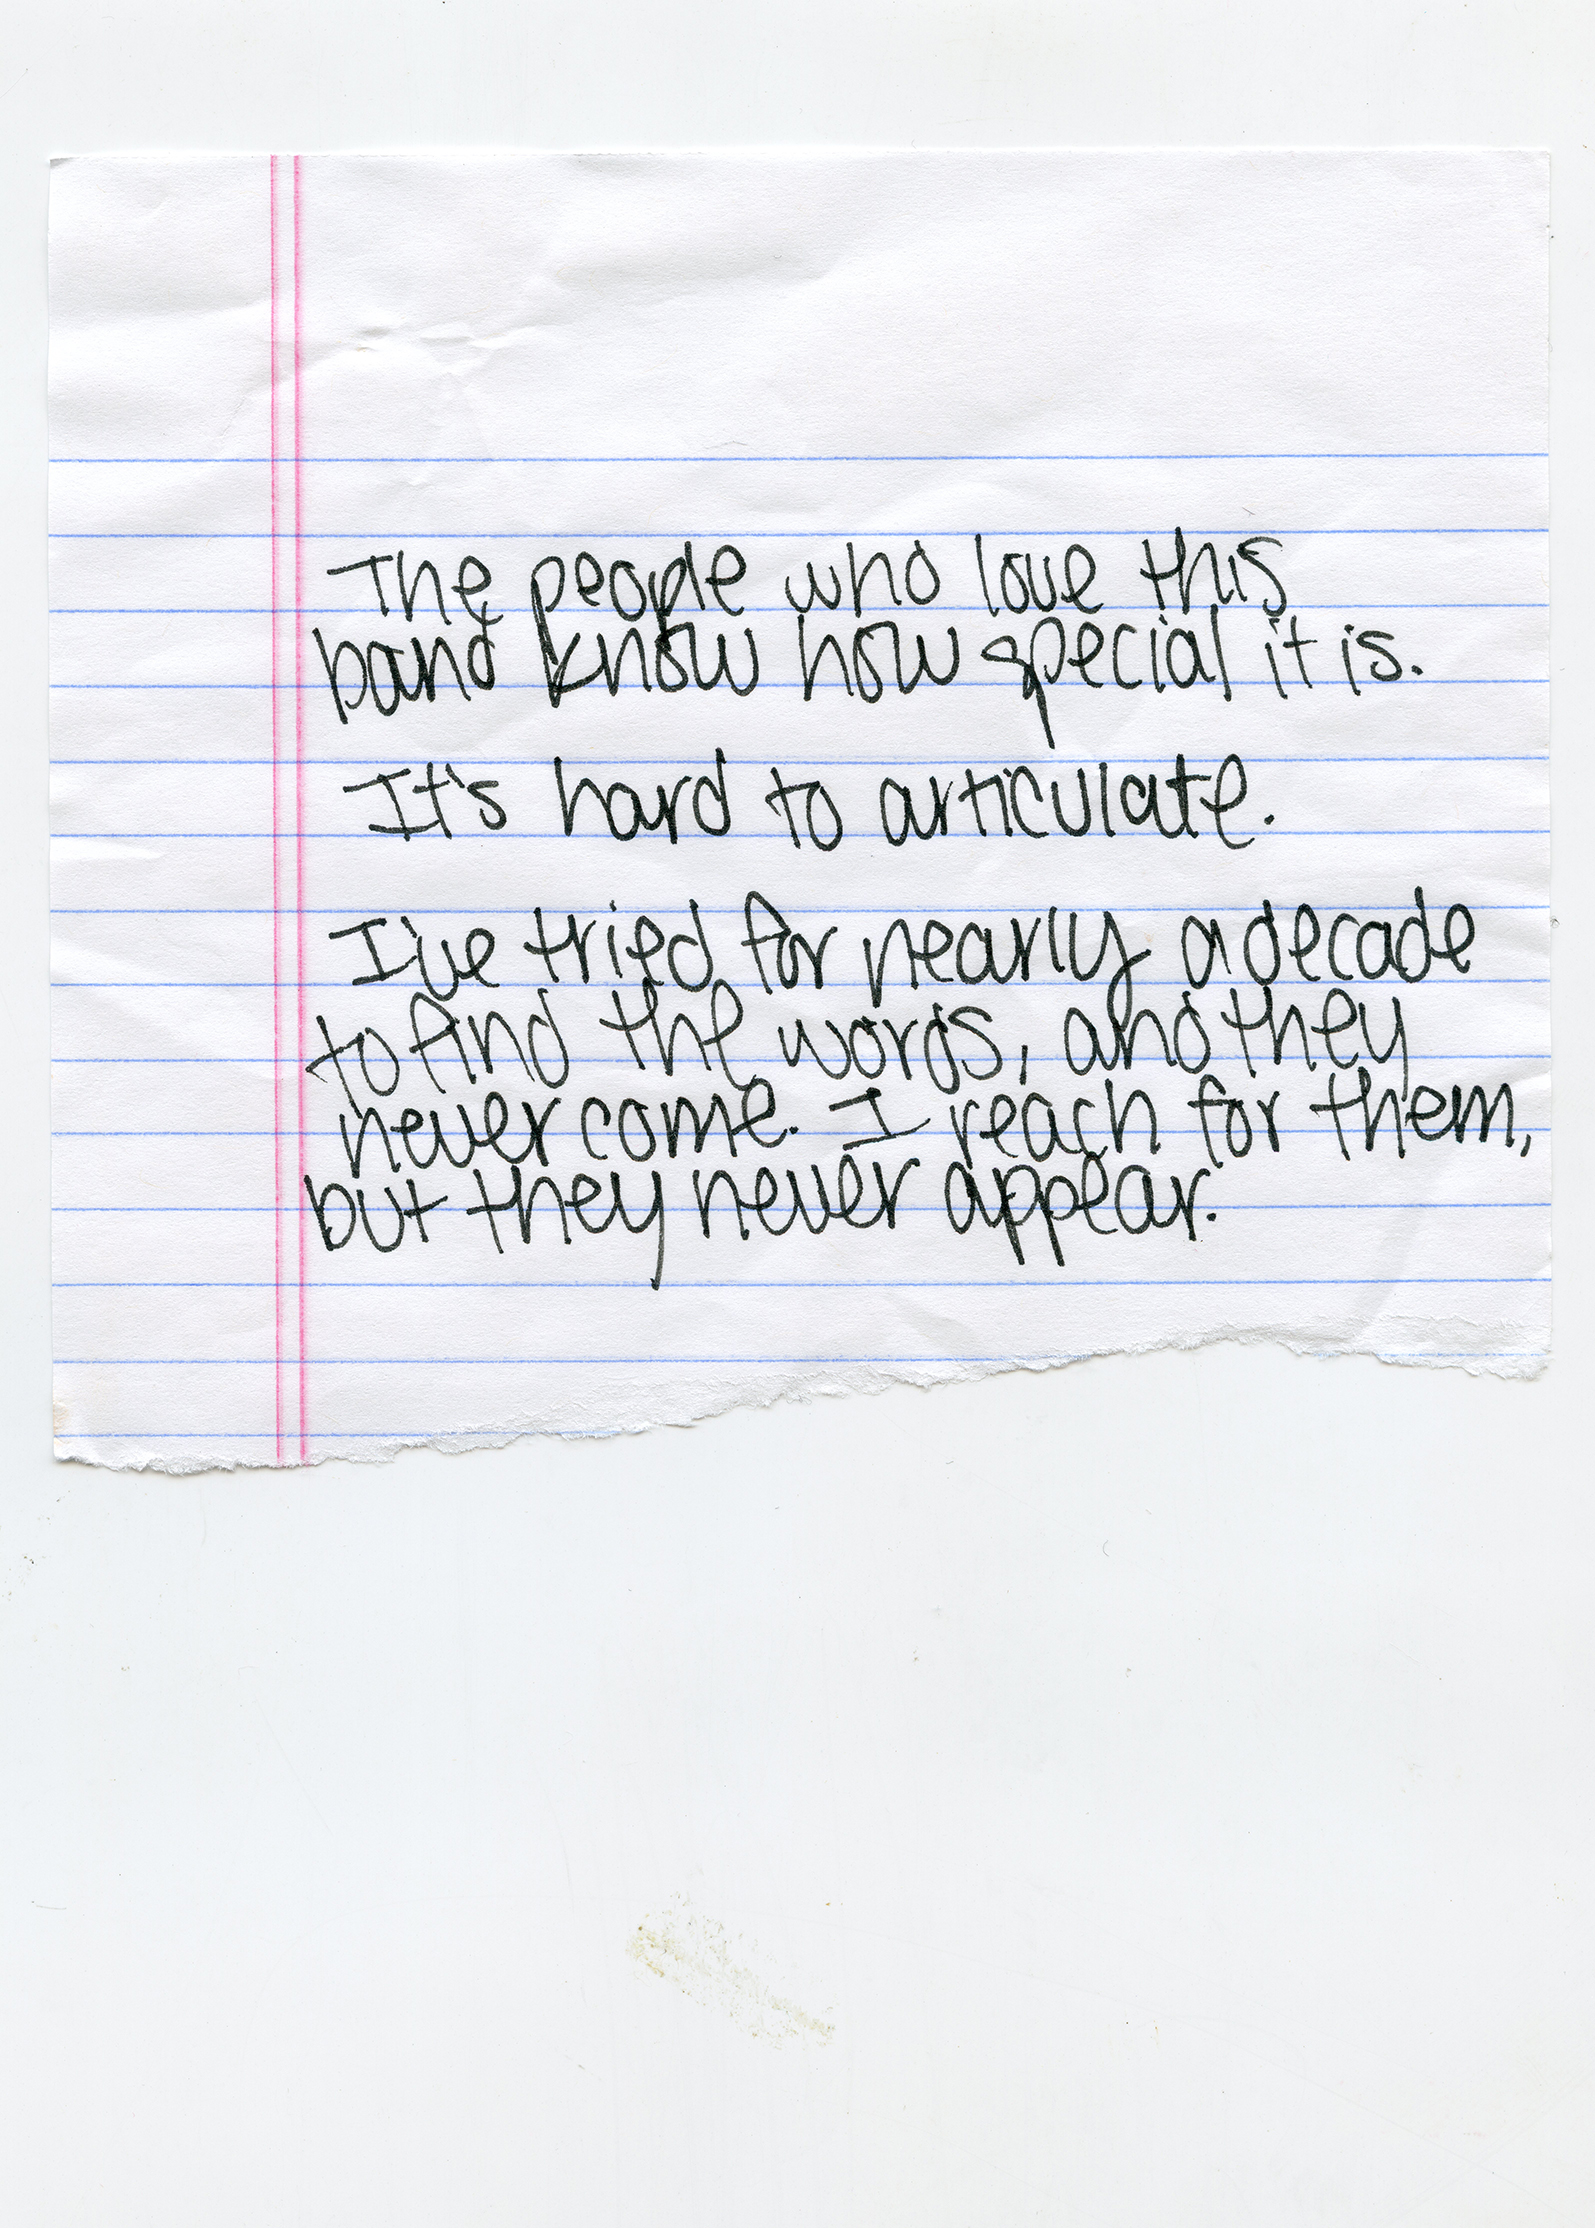 The people who love this
band know how special it is.
It's hard to articulate.
I've tried for nearly a decade
to find the words, and they
never come. I reach for them,
but they never appear.